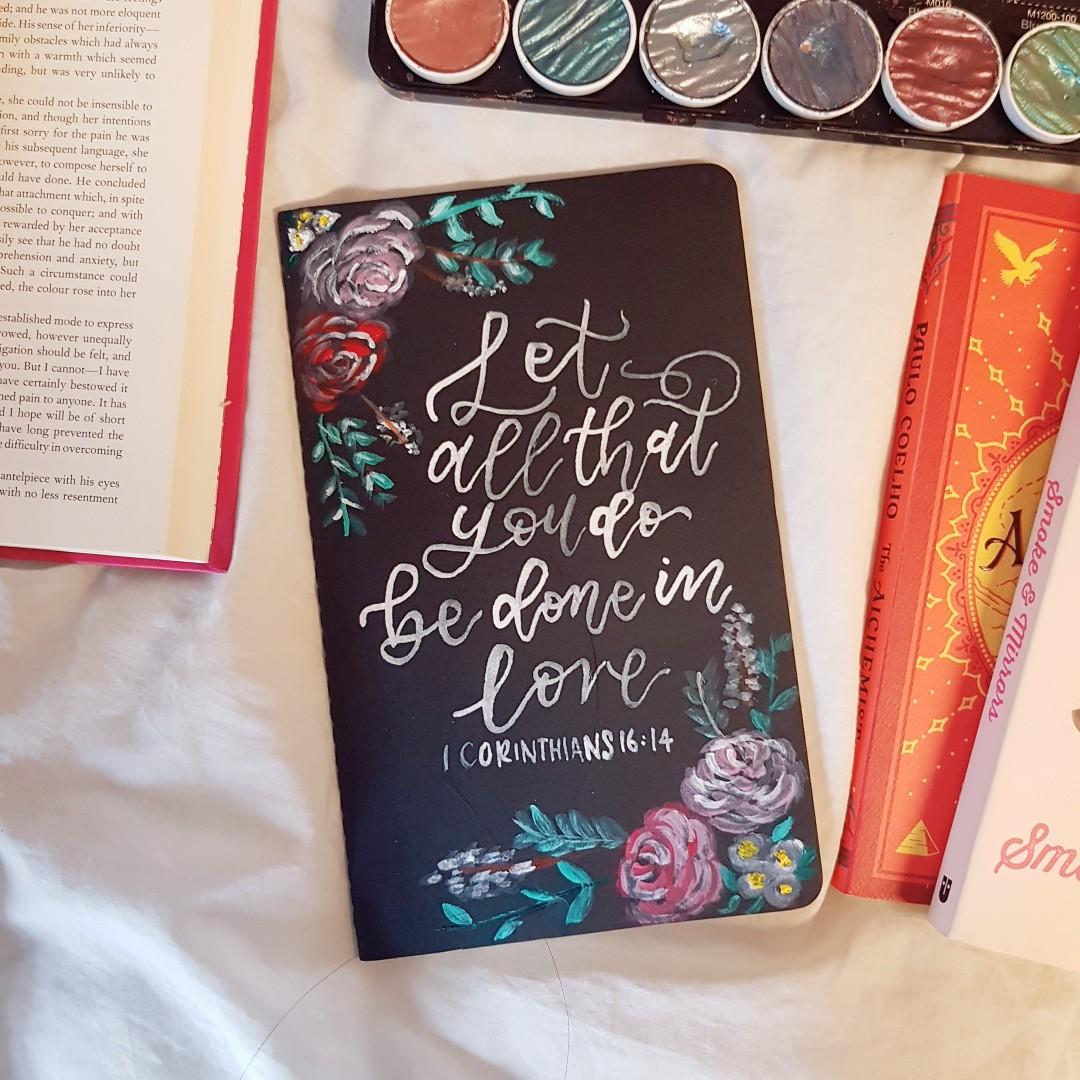 ed; and he was not more eloquent
ide. His sense of her inferiority—
mily obstacles which had always
n with a warmth which seemed
ding, but was very unlikely to
, she could not be insensible to
ion, and though her intentions
first sorry for the pain he was
his subsequent language, she
owever, to compose herself to
uld have done. He concluded
hat attachment which, in spite
ossible to conquer; and with
rewarded by her acceptance
sily see that he had no doubt
prehension and anxiety, but
Such a circumstance could
ed, the colour rose into her
established mode to express
vowed, however unequally
igation should be felt, and
you. But I cannot—I have
have certainly bestowed it
ned pain to anyone. It has
d I hope will be of short
have long prevented the
difficulty in overcoming
antelpiece with his eyes
with no less resentment
M016
M1200-100
Let
all that
you do
be done in
love
1 CORINTHIANS 16:14
PAULO COELHO The ALCHEMIST
A
Smoke & Mirrors
Sm